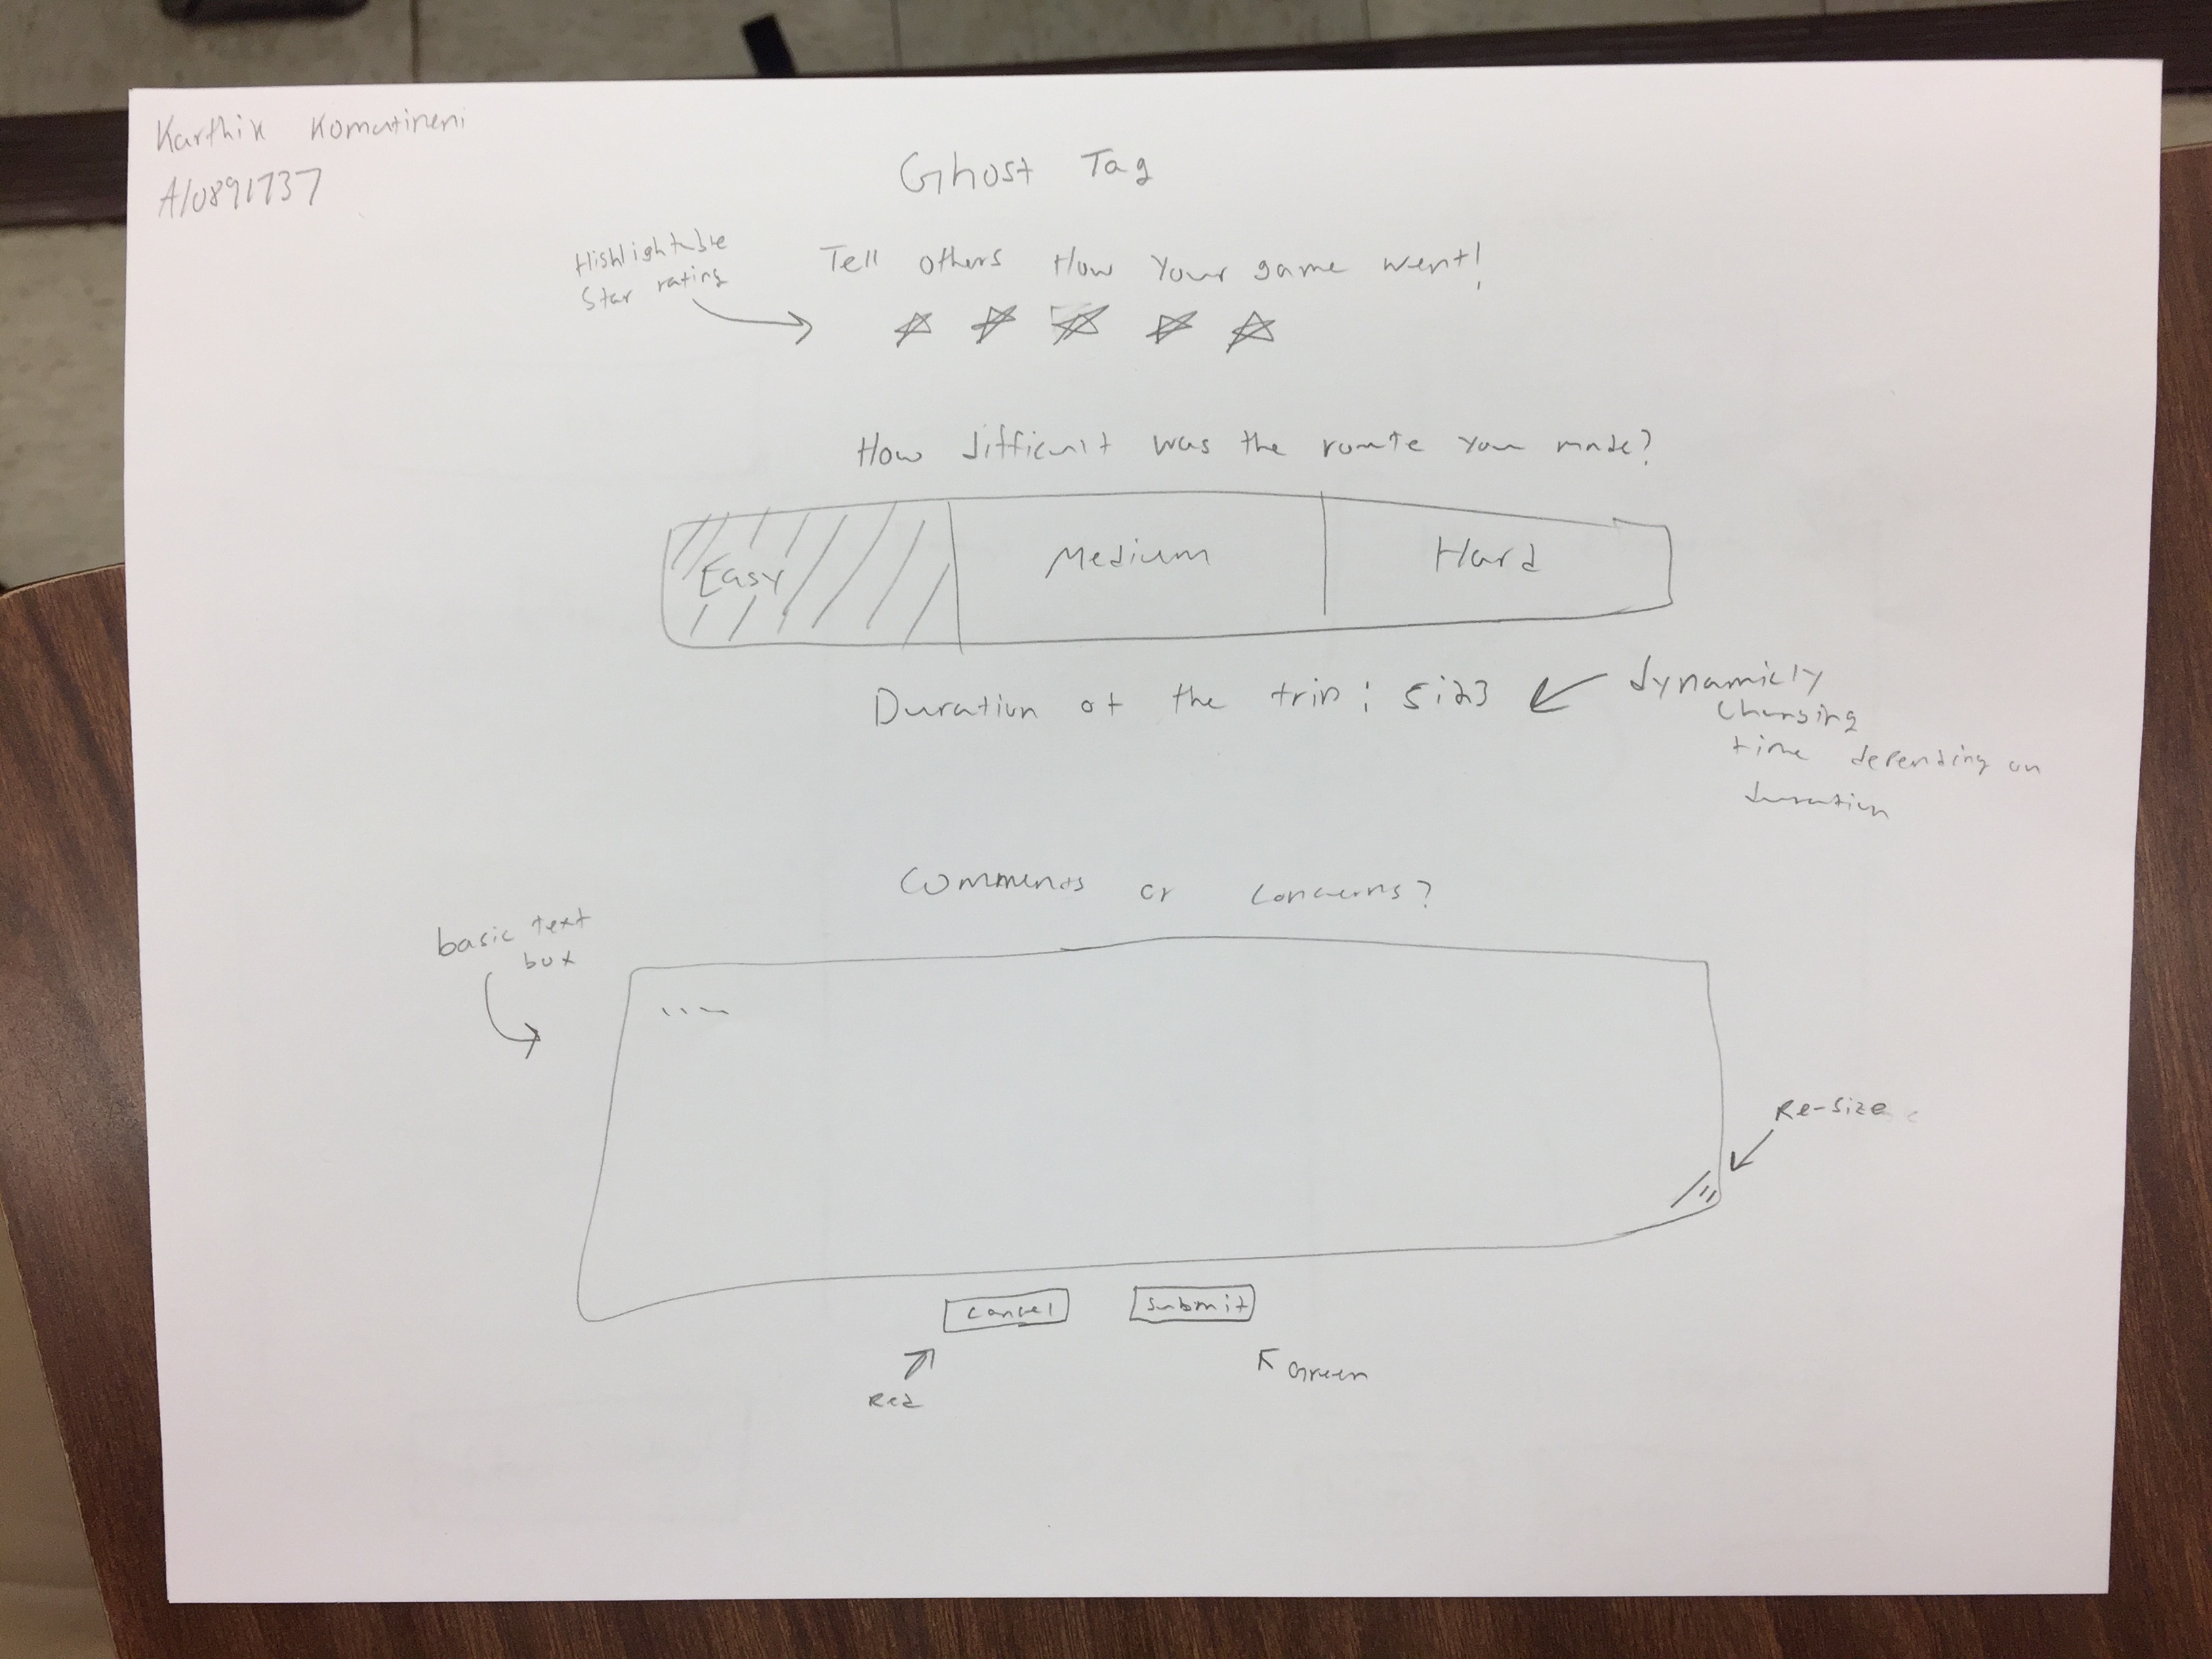 Karthik Komatineni
A10891737
Ghost Tag
Highlightable
Star rating
Tell others How Your game went!
How difficult was the route you made?
Easy Medium Hard
Duration of the trip: 5:23
dynamicly
changing
time depending on
duration
Comments or concerns?
basic text
box
....
Re-size
cancel submit
Red
Green